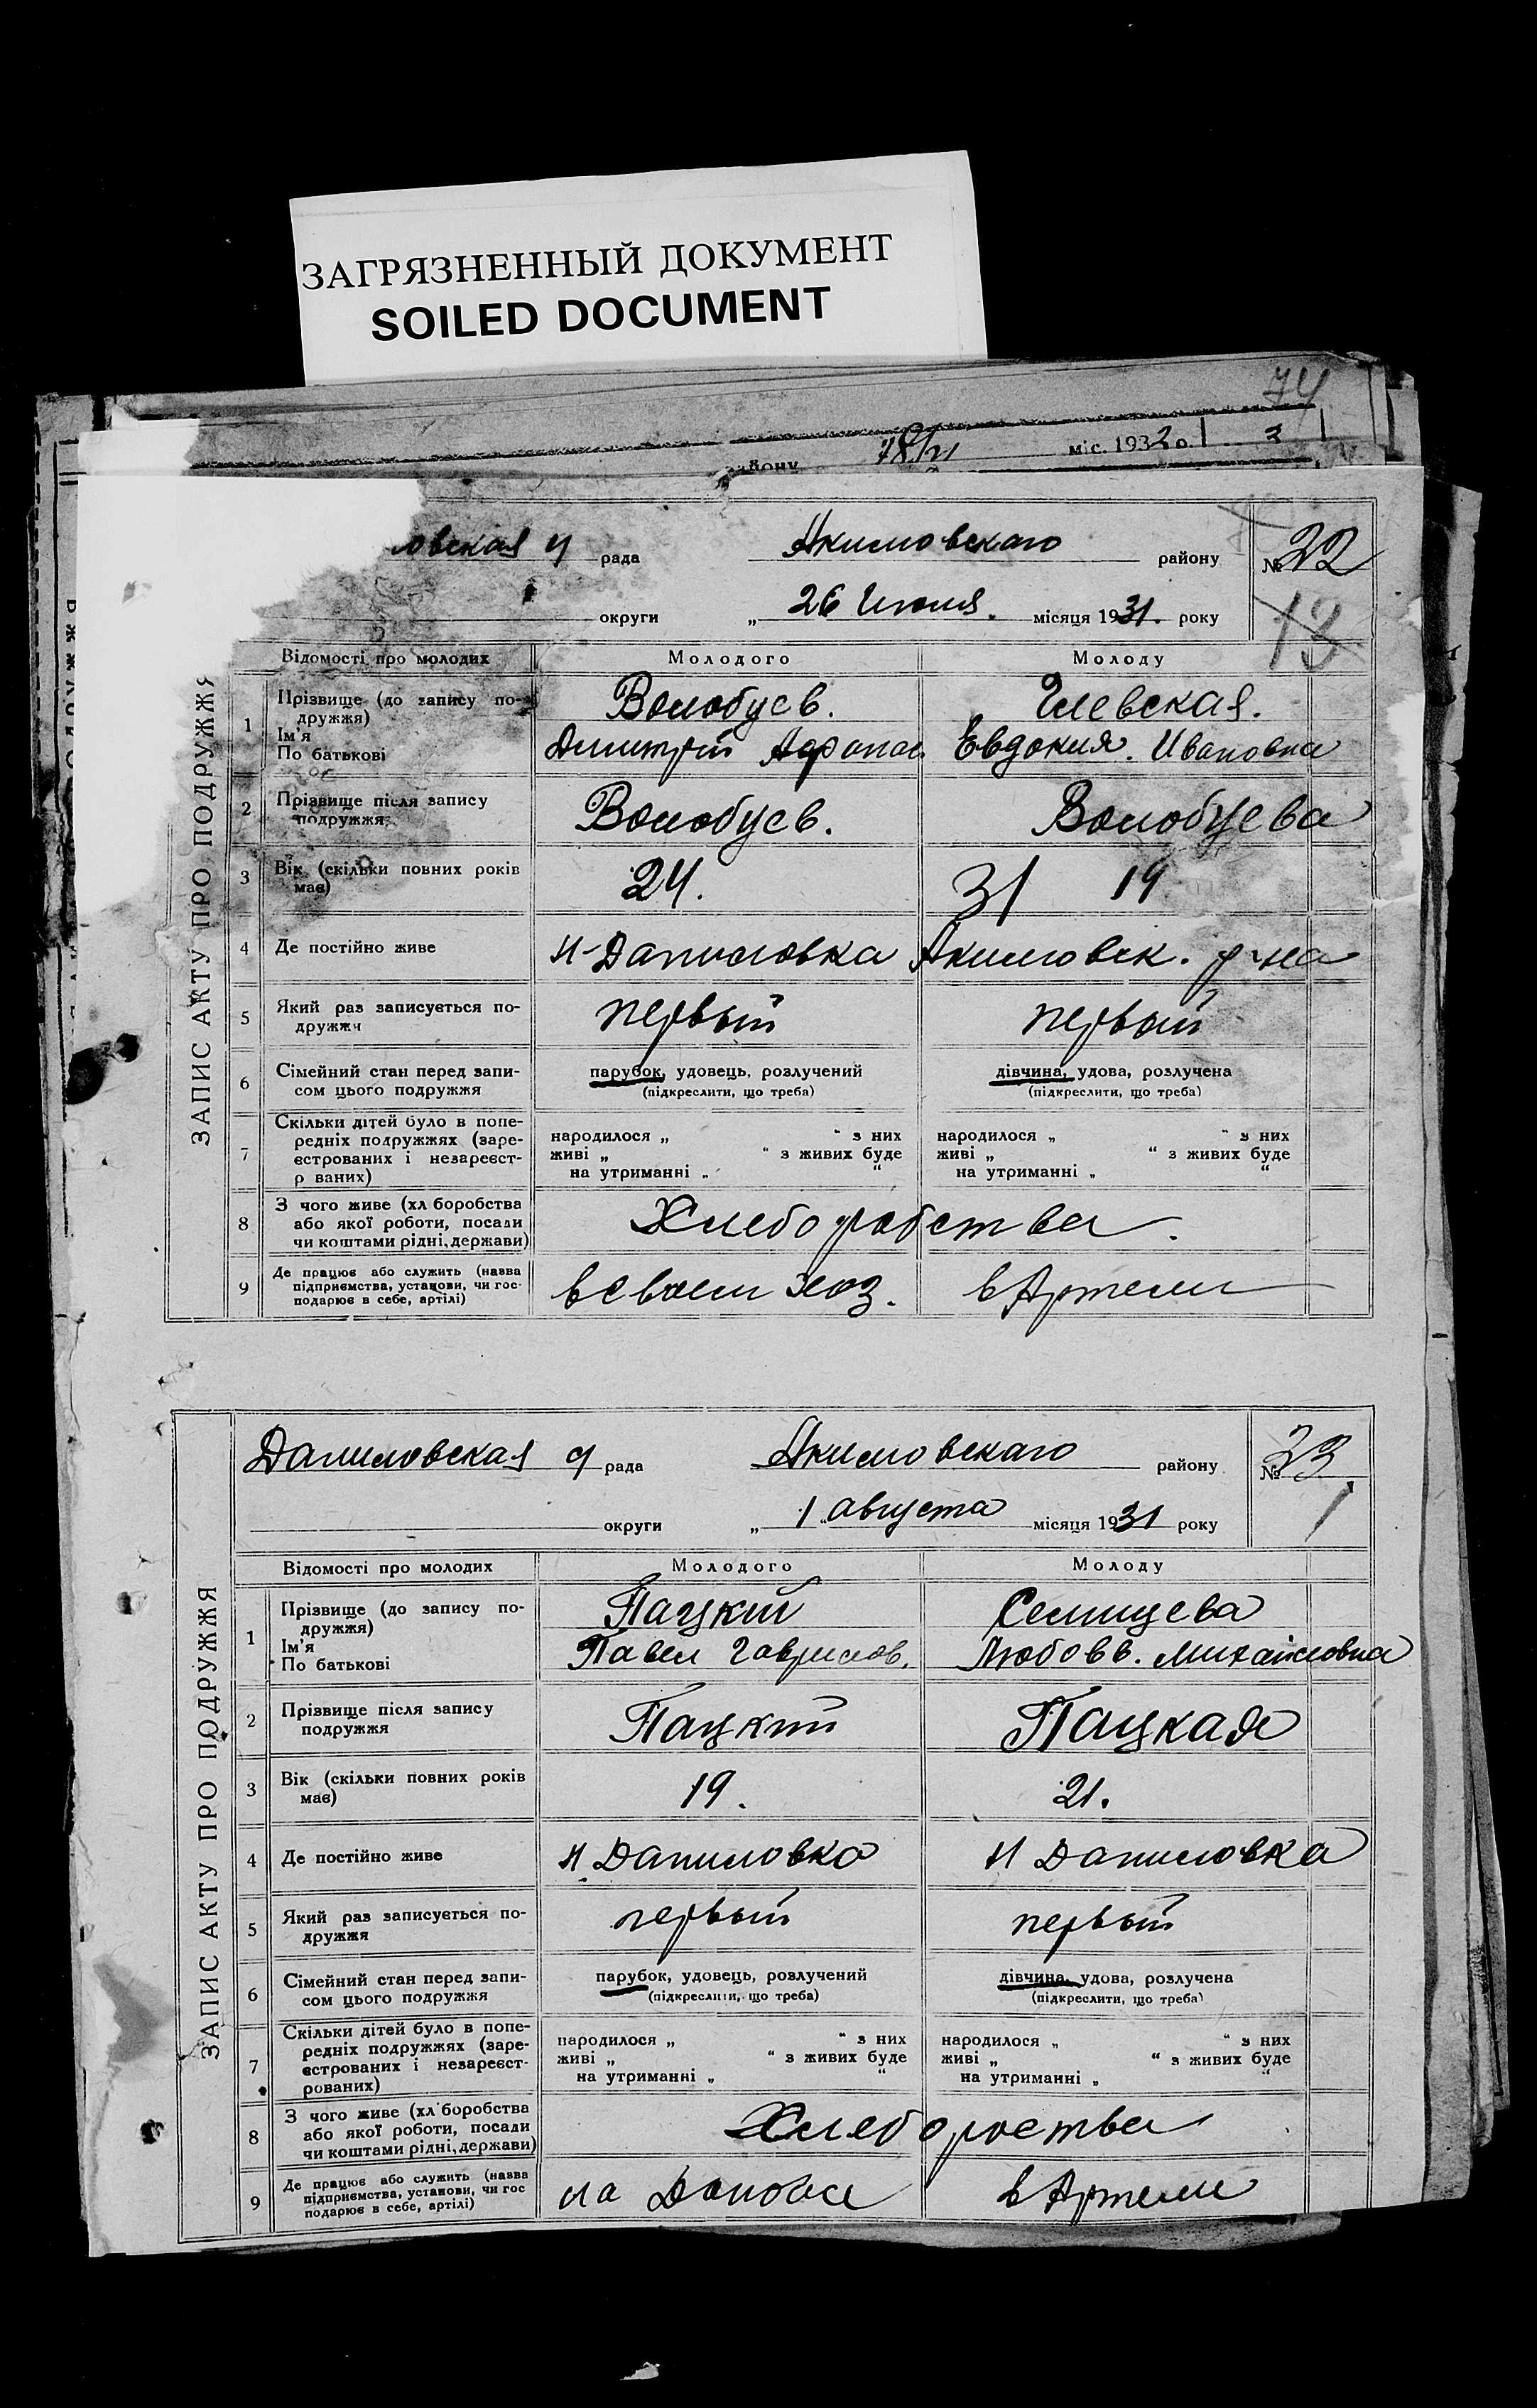 ЗАГРЯЗНЕННЫЙ ДОКУМЕНТ
SOILED DOCUMENT
74
району міс. 1932 р. 3
овская рада Акимовскаго району № 22
округи „ 26 Июля. місяця 1931. року
13
ЗАПИС АКТУ ПРО ПОДРУЖЖЯ
Відомості про молодих Молодого Молоду
1 Прізвище (до запису по-
дружжя) Волобуев.
Ім'я
По батькові Дмитрій Афонас. Евдокия. Ивановна
2 Прізвище після запису
подружжя Волобуев. Волобуева
3 Вік (скільки повних років
має) 24. 31 19
4 Де постійно живе Н-Даниловка Акимовск. р-на
5 Який раз записується по-
дружжя первый первый
6 Сімейний стан перед запи-
сом цього подружжя парубок, удовець, розлучений дівчина, удова, розлучена
(підкреслити, що треба) (підкреслити, що треба)
7 Скільки дітей було в попе-
редніх подружжях (заре-
єстрованих і незареєст-
р ваних)
народилося „ “ з них народилося „ “ з них
живі „ “ з живих буде живі „ “ з живих буде
на утриманні „ “ на утриманні „ “
8 З чого живе (хл боробства
або якої роботи, посади
чи коштами рідні, держави) Хлеборобства.
9 Де працює або служить (назва
підприємства, установи, чи гос-
подарює в себе, артілі) в своем хоз. в Артели
Даниловская рада Акимовскаго району № 23
округи „ 1 “ августа місяця 1931 року
1
ЗАПИС АКТУ ПРО ПОДРУЖЖЯ
Відомості про молодих Молодого Молоду
1 Прізвище (до запису по-
дружжя) Пацкий Селищева
Ім'я
По батькові Павел Гаврилов. Любовв. Михайловна
2 Прізвище після запису
подружжя Пацкий Пацкая
3 Вік (скільки повних років
має) 19. 21.
4 Де постійно живе Н Даниловка Н Даниловка
5 Який раз записується по-
дружжя первый первый
6 Сімейний стан перед запи-
сом цього подружжя парубок, удовець, розлучений дівчина, удова, розлучена
(підкреслити, що треба) (підкреслити, що треба)
7 Скільки дітей було в попе-
редніх подружжях (заре-
єстрованих і незареєст-
рованих)
народилося „ “ з них народилося „ “ з них
живі „ “ з живих буде живі „ “ з живих буде
на утриманні „ “ на утриманні „ “
8 З чого живе (хл боробства
або якої роботи, посади
чи коштами рідні, держави) Хлебороства
9 Де працює або служить (назва
підприємства, установи, чи гос
подарює в себе, артілі) на в Артели